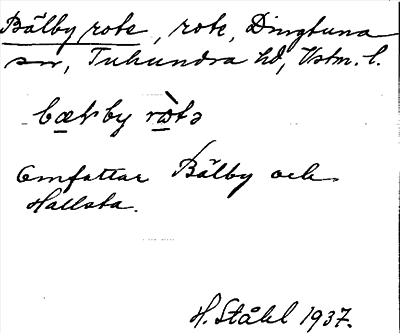 Bälby rote, rote, Dingtuna
sn, Tuhundra hd, Vstm. l.
by
Omfattar Bälby och
Hallsta.
H. Ståhl 1937.